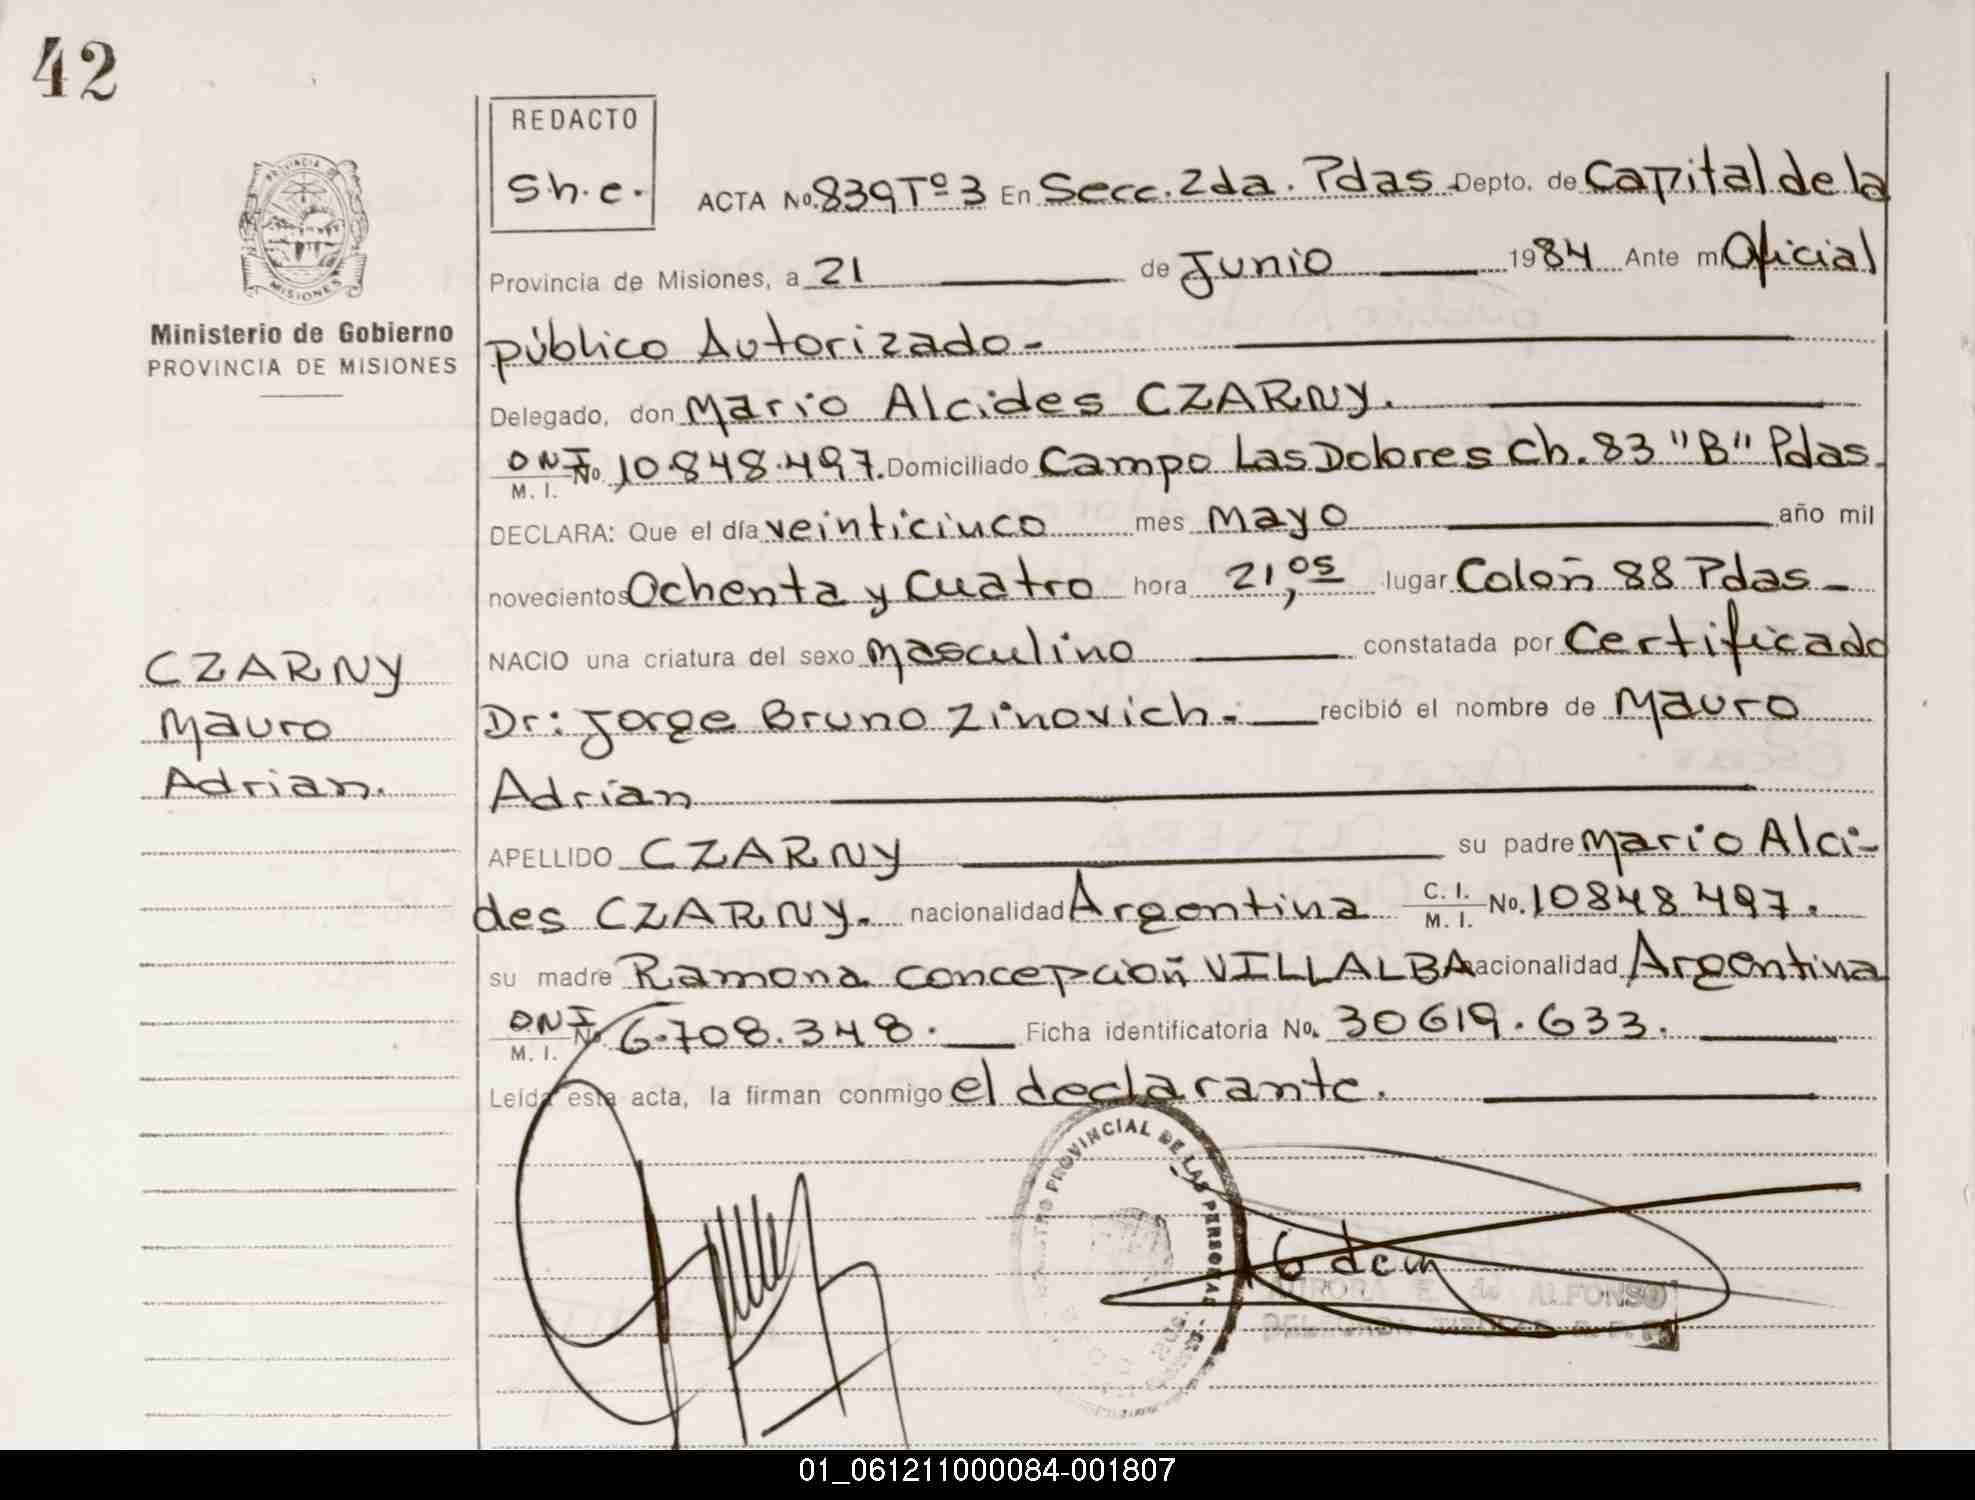 42
REDACTO
S.h.e.
ACTA No. 839 Tº 3 En Secc. 2da. Pdas Depto. de Capital de la
PROVINCIA
MISIONES
Provincia de Misiones, a 21 de Junio 1984 Ante mi Oficial
Ministerio de Gobierno
PROVINCIA DE MISIONES
público Autorizado-
Delegado, don Mario Alcides CZARNY.
DNI M. I. No. 10.848.497. Domiciliado Campo Las Dolores Ch. 83 "B" Pdas.
DECLARA: Que el día veinticinco mes Mayo año mil
novecientos Ochenta y Cuatro hora 21,05 lugar Colón 88 Pdas-
NACIO una criatura del sexo Masculino constatada por Certificado
Dr: Jorge Bruno Zinovich.- recibió el nombre de Mauro
Adrian
CZARNY
Mauro
Adrian.
APELLIDO CZARNY su padre Mario Alci-
des CZARNY. nacionalidad Argentina C. I. M. I. No. 10848497.
su madre Ramona Concepción VILLALBA nacionalidad Argentina
DNI M. I. No. 6.708.348. Ficha identificatoria No. 30619.633.
Leída esta acta, la firman conmigo el declarante.
REGISTRO PROVINCIAL DE LAS PERSONAS
AURORA E. de ALFONSO
01_061211000084-001807